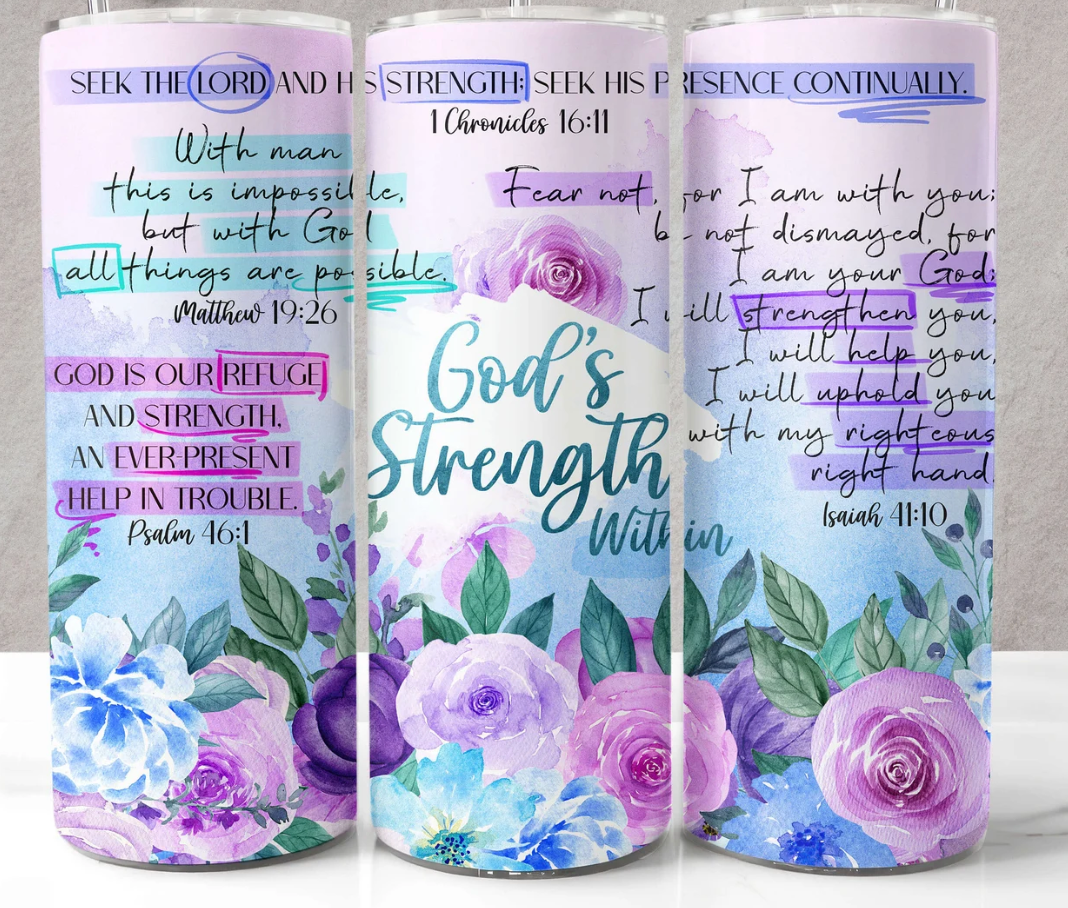 SEEK THE LORD AND HIS STRENGTH; SEEK HIS PRESENCE CONTINUALLY.
1 Chronicles 16:11
With man
this is impossible,
but with God
all things are possible.
Matthew 19:26
GOD IS OUR REFUGE
AND STRENGTH,
AN EVER-PRESENT
HELP IN TROUBLE.
Psalm 46:1
God's
Strength
Within
Fear not, for I am with you;
be not dismayed, for
I am your God;
I will strengthen you,
I will help you,
I will uphold you
with my righteous
right hand.
Isaiah 41:10